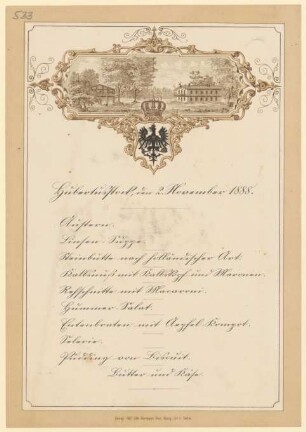 533
Hubertusstock, den 2. November 1888.
Austern.
Linsen Suppe.
Steinbutte nach holländischer Art
mit und Maronen.
Rehschnitte mit Macaroni.
Hummer Salat.
Entenbraten mit Aepfel Kompot.
Selerie.
Pudding von Biscuit.
Butter und Käse.